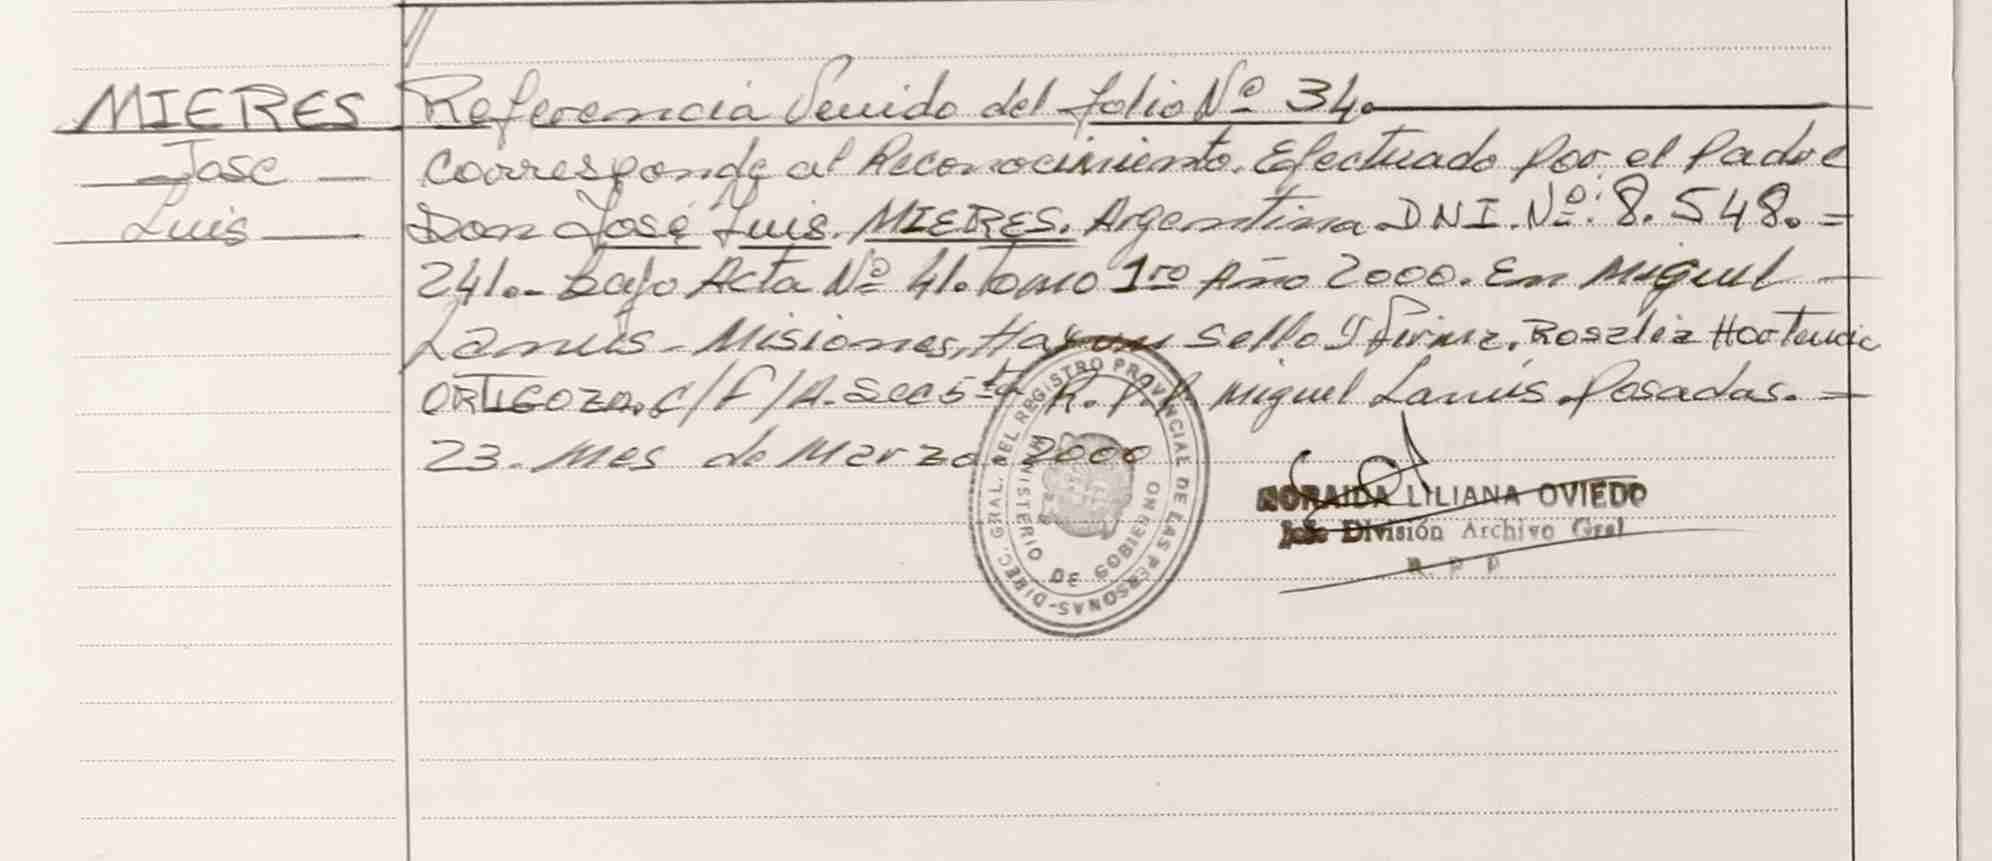 MIERES
Jose
Luis
Referencia Venido del folio Nº 34.
Corresponde al Reconocimiento. Efectuado Por el Padre
Don José Luis. MIERES. Argentina DNI. Nº: 8.548.=
241.- bajo Acta Nº 41. Tomo 1ro Año 2000. En Miguel
Lanús - Misiones, Hay un Sello y Firma. Rosalia Hortencia
ORTIGOZA. C/F/A. Secc 5ta R.P.P. Miguel Lanús. Posadas. =
23. Mes de Marzo 2000
DIREC. GRAL. DEL REGISTRO PROVINCIAL DE LAS PERSONAS-
MINISTERIO DE GOBIERNO
NORAIDA LILIANA OVIEDO
Jefe División Archivo Gral
R. P. P